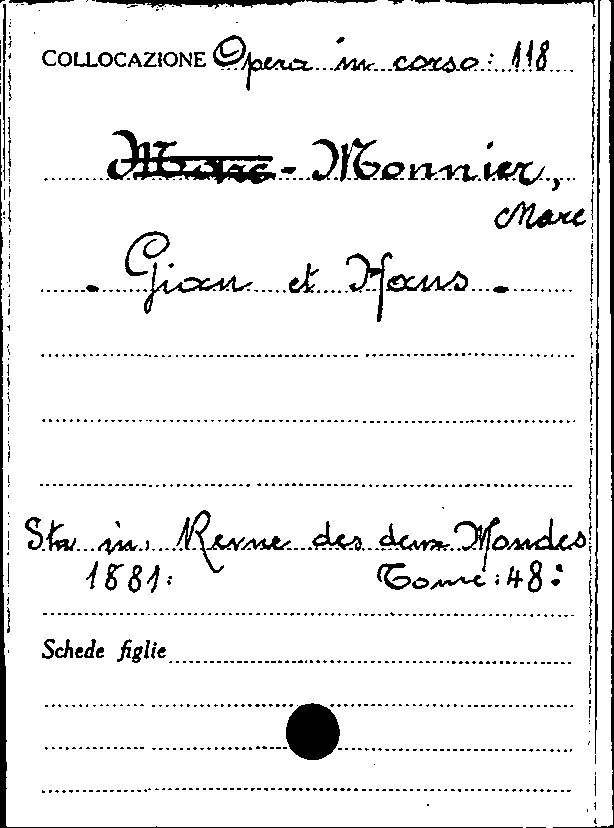 COLLOCAZIONE Opera in corso: 118
Marc - Monnier,
Marc
- Gian et Hans -
Sta in. Revue des deux Mondes
1881: Tome: 48:
Schede figlie